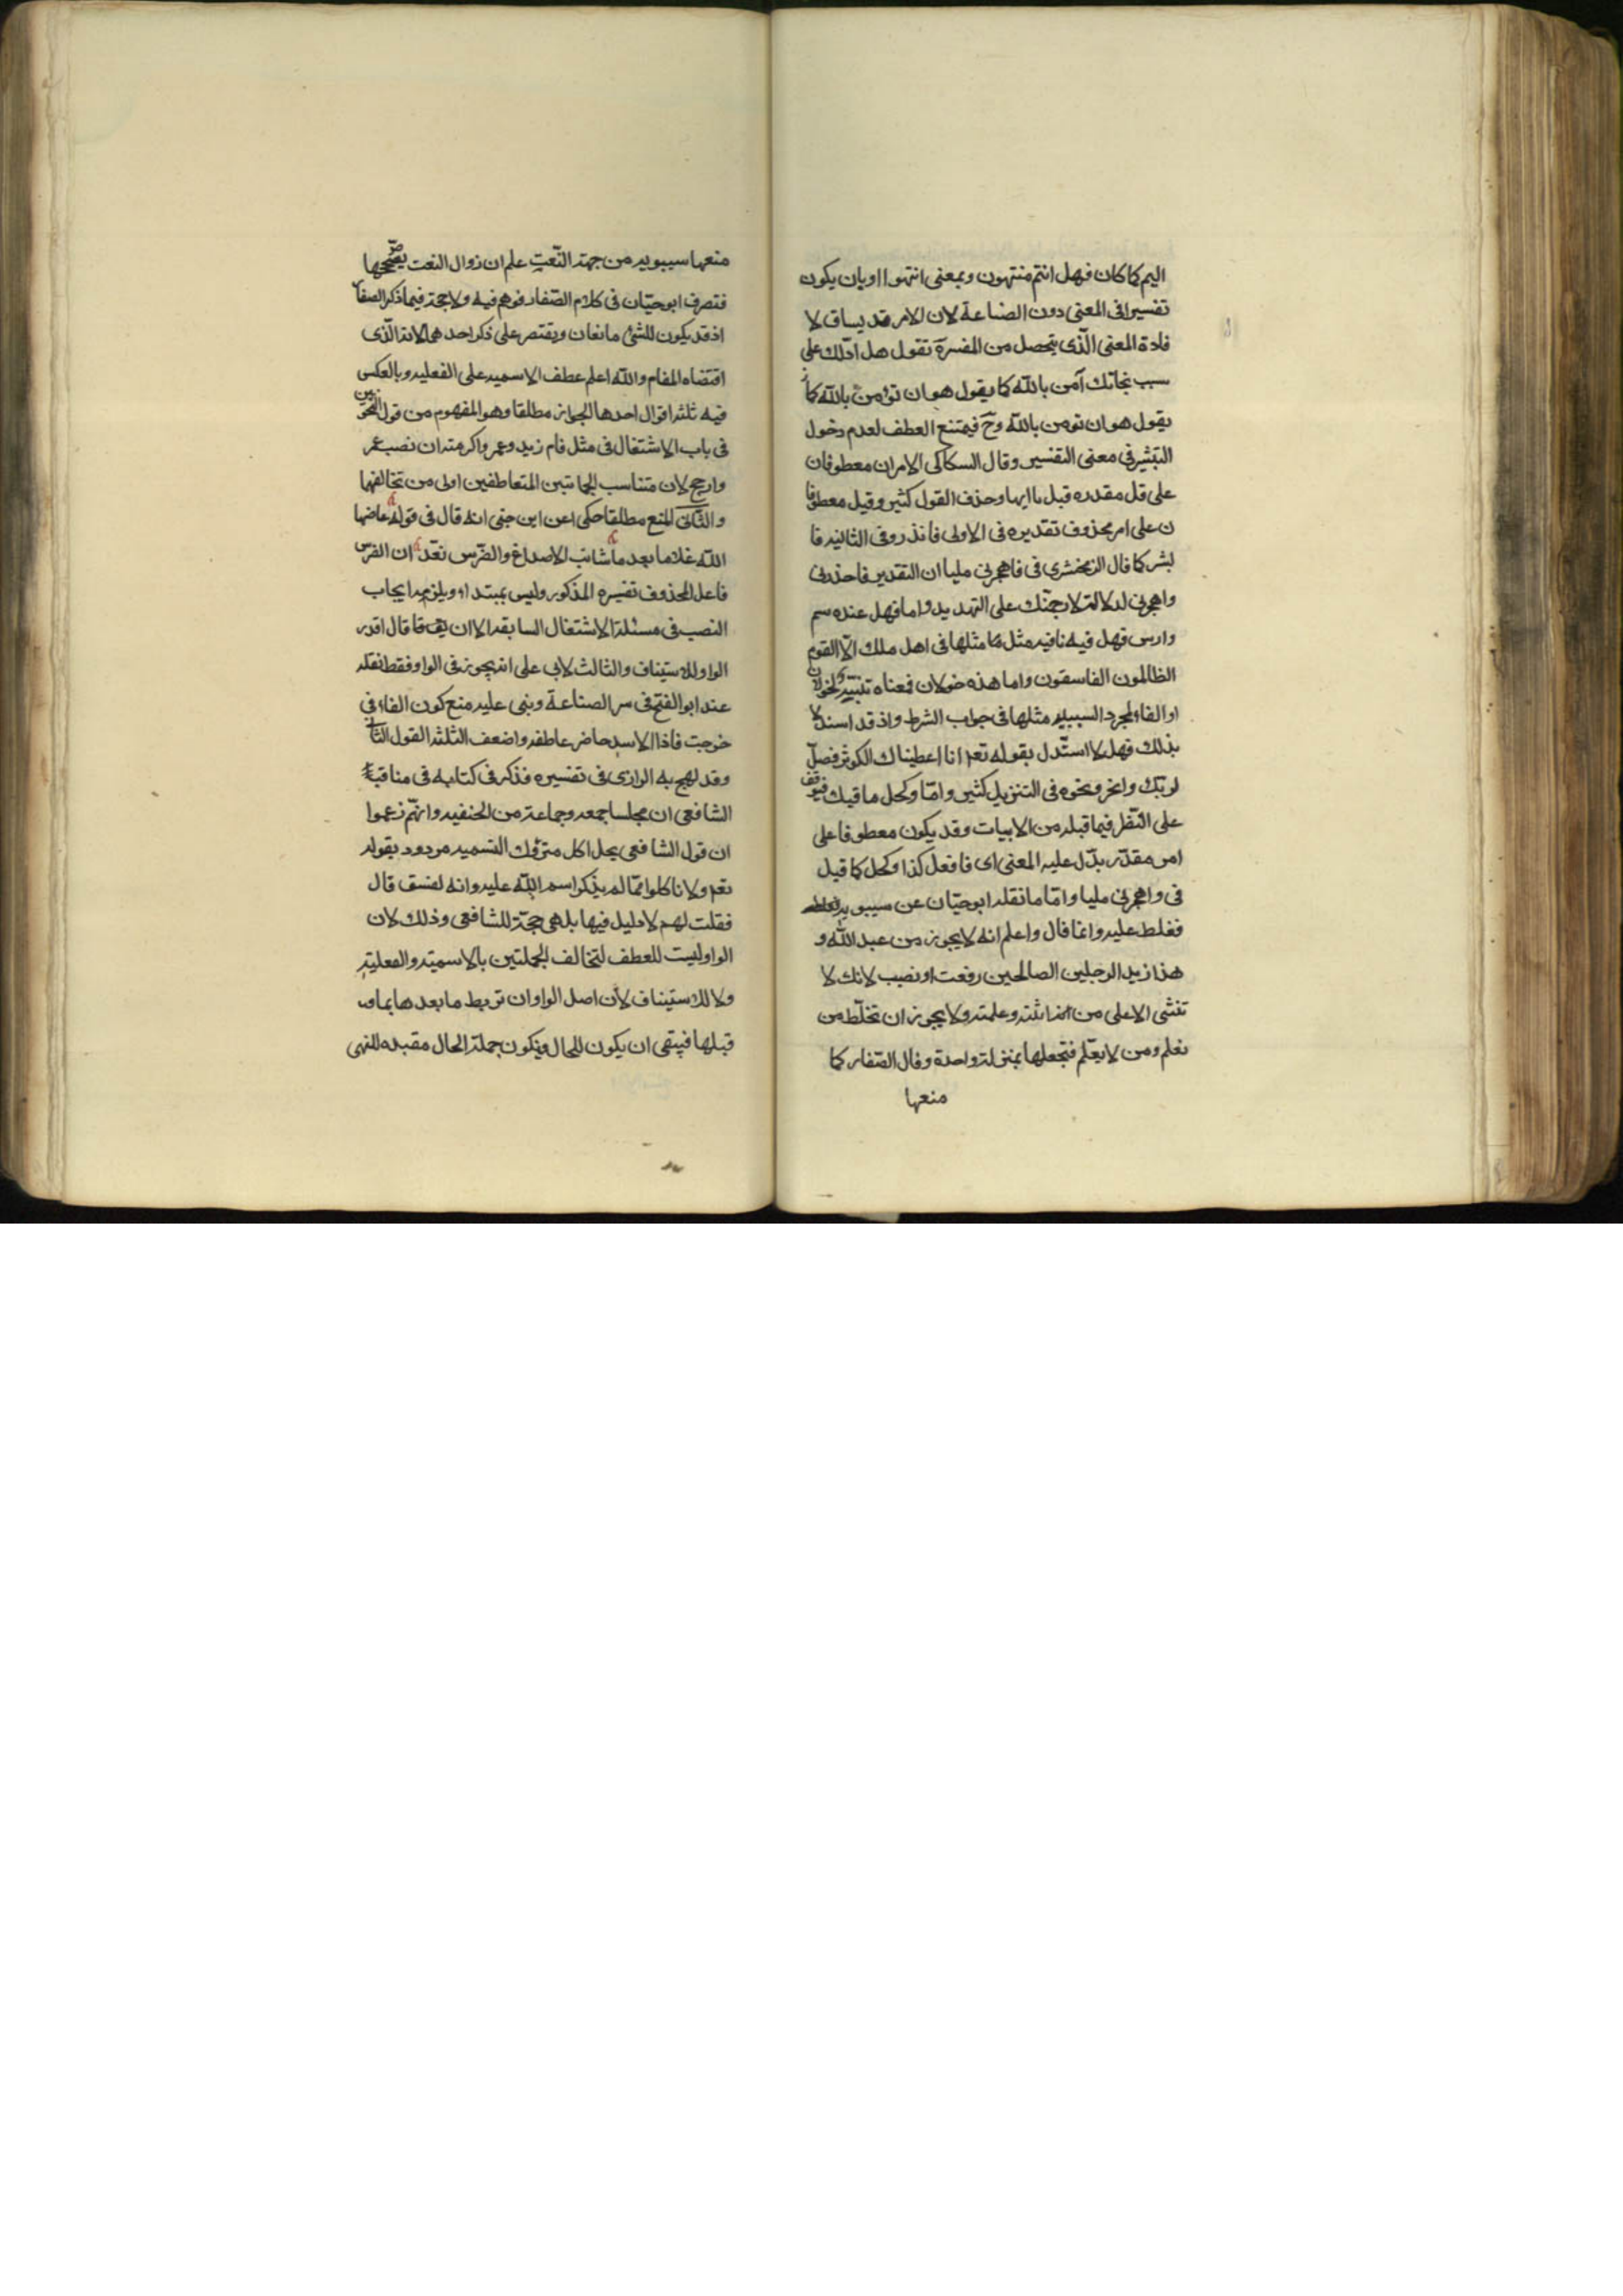 اليم كما كان فهل انتم منتهون وبمعنى انتهوا او بان يكون
تفسيرا فى المعنى دون الصناعة لان الامر قد يساق لا
فادة المعنى الّذى يتحصل من المفسرة تقول هل ادّلك على
سبب نجاتك آمن بالله كما يقول هو ان تؤمن بالله كما
يقول هو ان تومن بالله وحَ فيمتنع العطف لعدم دخول
التبشير فى معنى التفسير وقال السكاكى الامران معطوفان
على قل مقدره قبل يا ايها وحذف القول كثير وقيل معطوفا
ن على امر محذوف تقديره فى الاولى فانذر وفى الثانيه فا
بشر كما قال الزمخشرى فى فاهجرنى مليا ان التقدير فاحذرنى
واهجرنى لدلالة لارجمنّك على التهديد واما فهل عنده سم
دارس فهل فيه نافيه مثل ما مثلها فى اهل ملك الّا القوم
الظالمون الفاسقون واما هذه خولان فمعناه تنبّه لخولان
او الفاء لمجرد السببيه مثلها فى جواب الشرط واذ قد اسند لا
بذلك فهل لا استّدل بقوله تعم انا اعطيناك الكوثر فصلّ
لربّك وانحر ونحوه فى التنزيل كثير وامّا وكحل ماقيك فيوقف
على النّظر فيما قبله من الابيات وقد يكون معطوفا على
امر مقدّر يدّل عليه المعنى اى فافعل كذا وكحل كما قيل
فى واهجرنى مليا وامّا ما نقله ابوحيّان عن سيبويه
فغلط عليه وانما قال واعلم انه لا يجوز من عبد الله و
هذا زيد الرجلين الصالحين رفعت او نصب لانك لا
تثنى الا على من اثبته وعلمته ولا يجوز ان تخلّط من
تعلم ومن لا يعّلم فتجعلها بمنزلة واحدة وقال الصّفار كما
منعها
منعها سيبويه من جهة النّعتِ علم ان زوال النعت يصّححها
فتصرف ابوحيّان فى كلام الصّفار فوهم فيه ولا حجة فيما ذكر الصفا
اذ قد يكون للشئ مانعان ويقتصر على ذكر احدهما لانه الّذى
اقتضاه المقام والله اعلم عطف الاسميه على الفعليه وبالعكس
فيه ثلثه اقوال احدها الجواز مطلقا وهو المفهوم من قول النحويين
فى باب الاشتغال فى مثل قام زيد وعمر واكرمته ان نصب عمر
وارجح لان متناسب الجملتين المتعاطفين اولى من تخالفهما
والثّانى المنع مطلقا حكى اعن ابن جنى انه قال فى قوله عاضها
اللّه غلاما بعد ما شابت الاصداغ والضّرس نقّد ان الضرس
فاعل المحذوف تفسيره المذكور وليس بمبتداء ويلزمه ايجاب
النصب فى مسئلة الاشتغال السابقه الا ان يق قال اقدر
الواو للاستيناف والثالث لابى على انه يجوز فى الواو فقط نقله
عنه ابوالفتح فى سر الصناعة وبنى عليه منع كون الفاء فى
خرجت فاذا الاسد حاضر عاطفه واضعف الثلثه القول الثانى
وقد لهج به الرازى فى تفسيره فذكر فى كتابه فى مناقب
الشافعى ان مجلسا جمعه وجماعة من الحنفيه وانهّم زعموا
ان قول الشافعى يحل اكل متروك التسميه مردود بقوله
تعم ولا تاكلوا ممّا لم يذكر اسم اللّه عليه وانه لفسق قال
فقلت لهم لا دليل فيها بل هى حجّة للشافعى وذلك لان
الواو ليست للعطف لتخالف الجملتين بالاسميّة والفعليّة
ولا للاستيناف لأن اصل الواو ان تربط ما بعدها بما
قبلها فيبقى ان يكون للحال ويكون جملة الحال مقيده للنهى